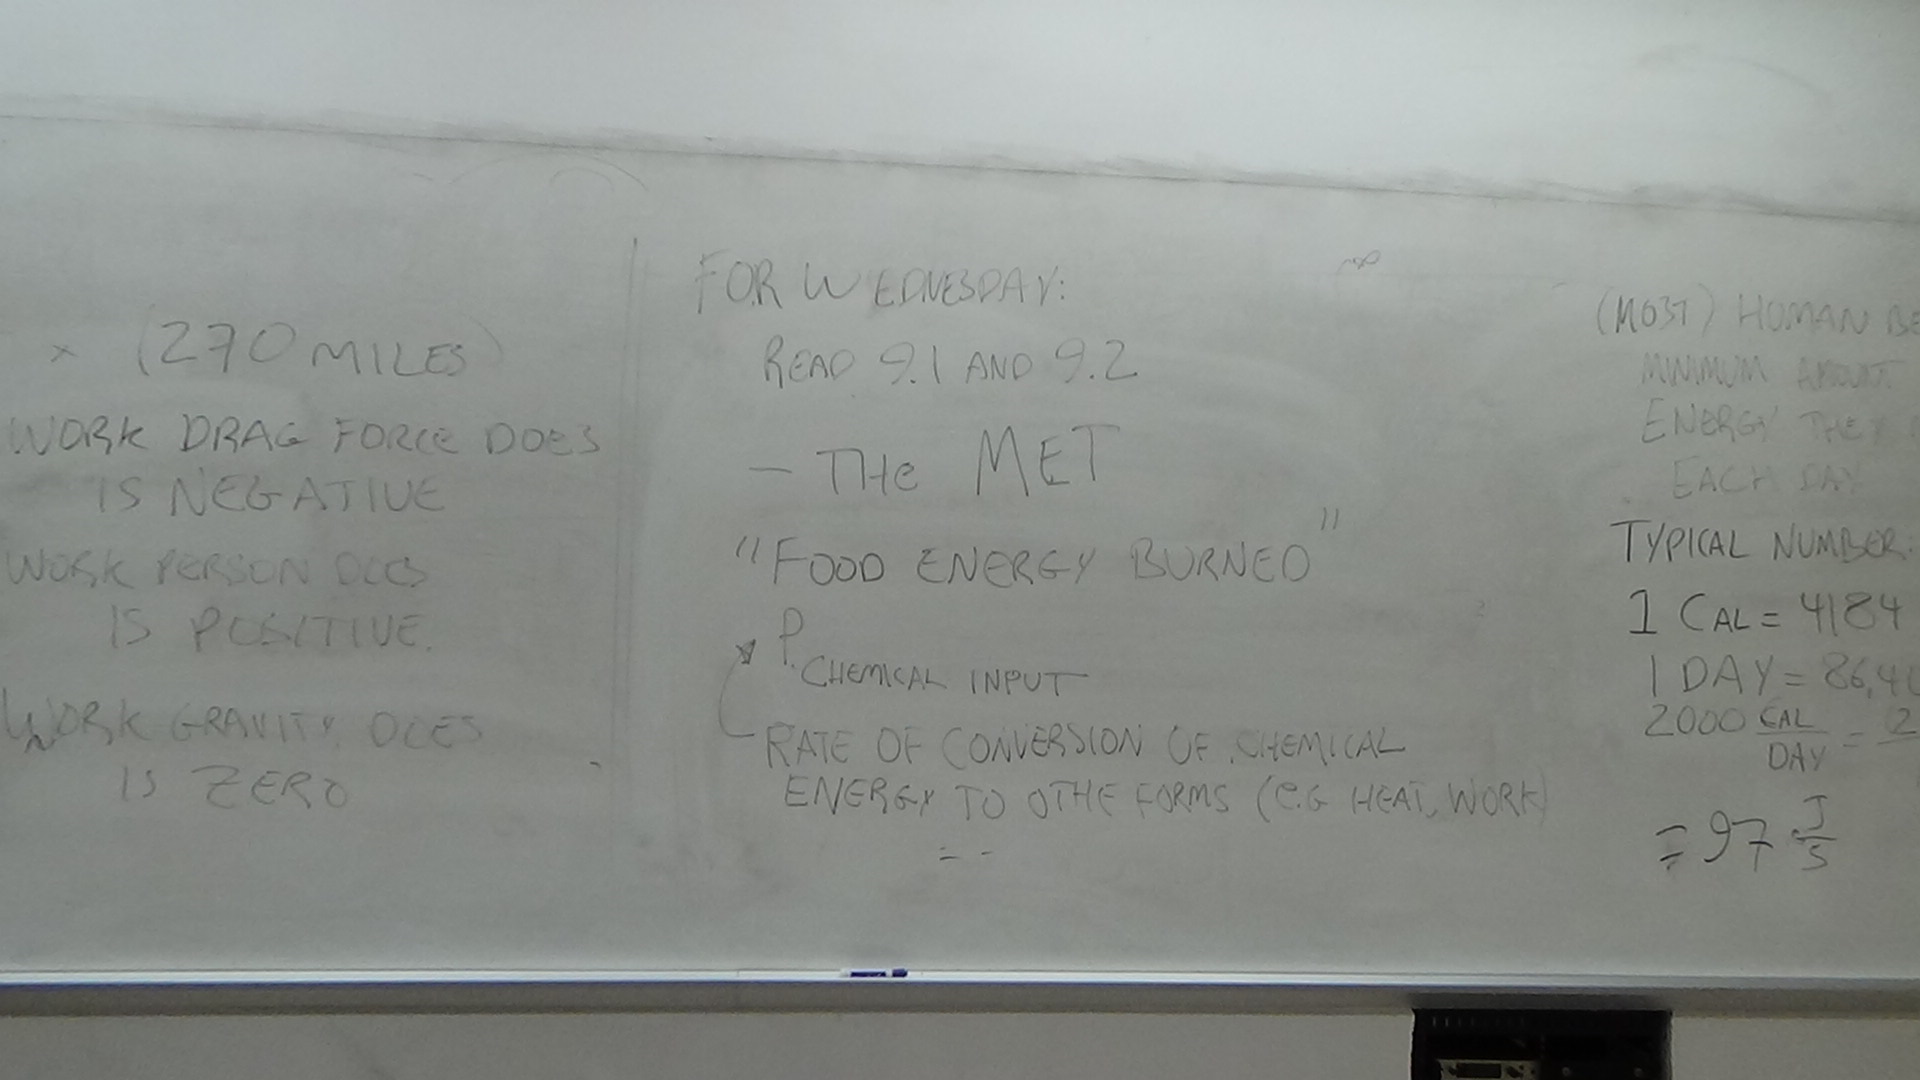 × (270 MILES)
WORK DRAG FORCE DOES
IS NEGATIVE
WORK PERSON DOES
IS POSITIVE.
WORK GRAVITY DOES
IS ZERO
FOR WEDNESDAY:
READ 9.1 AND 9.2
- THE MET
"FOOD ENERGY BURNED"
P CHEMICAL INPUT
RATE OF CONVERSION OF CHEMICAL
ENERGY TO OTHE FORMS (e.G HEAT, WORK)
= -
(MOST) HUMAN BE
MINIMUM AMOUNT
ENERGY THEY
EACH DAY
TYPICAL NUMBER:
1 CAL = 4184
1 DAY = 86,40
2000 CAL/DAY = 2
= 97 J/S